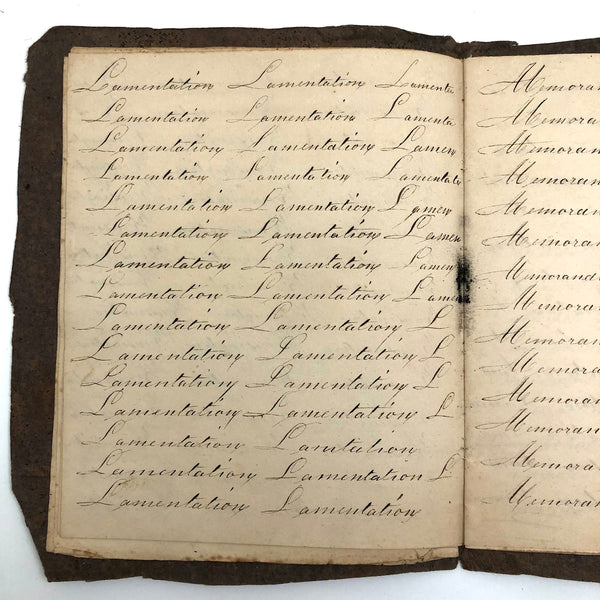 Lamentation Lamentation Lamenta
Lamentation Lamentation Lamenta
Lamentation Lamentation Lamen
Lamentation Lamentation Lamentati
Lamentation Lamentation Lamen
Lamentation Lamentation Lamen
Lamentation Lamentation Lamen
Lamentation Lamentation Lamen
Lamentation Lamentation L
Lamentation Lamentation L
Lamentation Lamentation L
Lamentation Lamentation L
Lamentation
Lamentation Lamentation L
Lamentation Lamentation
Memoran
Memoran
Memoran
Memoran
Memoran
Memoran
Memorand
Memoran
Memoran
Memoran
Memoran
Memoran
Memoran
Memoran